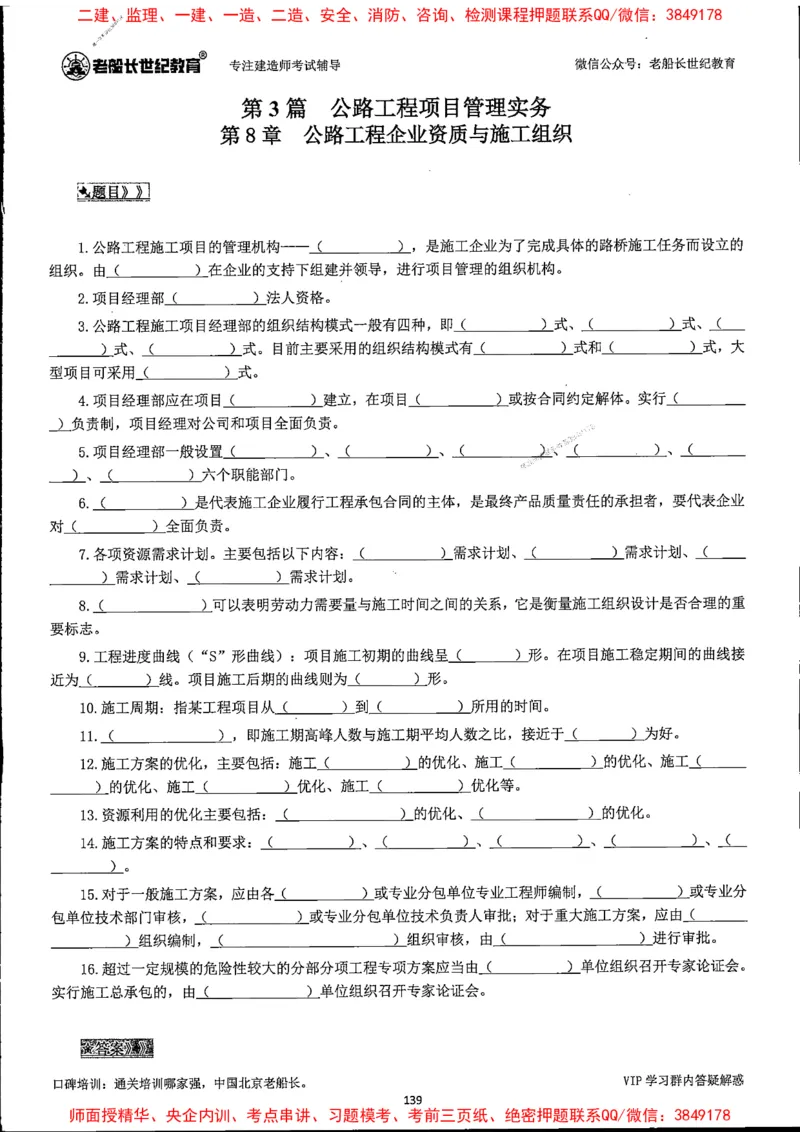 二建、监理、一建、一造、二造、安全、消防、咨询、检测课程押题联系QQ/微信：3849178
老船长世纪教育® 专注建造师考试辅导 微信公众号：老船长世纪教育
第 3 篇 公路工程项目管理实务
第 8 章 公路工程企业资质与施工组织
题目》》
1.公路工程施工项目的管理机构——（ ），是施工企业为了完成具体的路桥施工任务而设立的
组织。由（ ）在企业的支持下组建并领导，进行项目管理的组织机构。
2.项目经理部（ ）法人资格。
3.公路工程施工项目经理部的组织结构模式一般有四种，即（ ）式、（ ）式、（
）式、（ ）式。目前主要采用的组织结构模式有（ ）式和（ ）式，大
型项目可采用（ ）式。
4.项目经理部应在项目（ ）建立，在项目（ ）或按合同约定解体。实行（
）负责制，项目经理对公司和项目全面负责。
5.项目经理部一般设置（ ）、（ ）、（ ）、（ ）、（
）、（ ）六个职能部门。
6.（ ）是代表施工企业履行工程承包合同的主体，是最终产品质量责任的承担者，要代表企业
对（ ）全面负责。
7.各项资源需求计划。主要包括以下内容：（ ）需求计划、（ ）需求计划、（
）需求计划、（ ）需求计划。
8.（ ）可以表明劳动力需要量与施工时间之间的关系，它是衡量施工组织设计是否合理的重
要标志。
9.工程进度曲线（“S”形曲线）：项目施工初期的曲线呈（ ）形。在项目施工稳定期间的曲线接
近为（ ）线。项目施工后期的曲线则为（ ）形。
10.施工周期：指某工程项目从（ ）到（ ）所用的时间。
11.（ ），即施工期高峰人数与施工期平均人数之比，接近于（ ）为好。
12.施工方案的优化，主要包括：施工（ ）的优化、施工（ ）的优化、施工（
）的优化、施工（ ）优化、施工（ ）优化等。
13.资源利用的优化主要包括：（ ）的优化、（ ）的优化。
14.施工方案的特点和要求：（ ）、（ ）、（ ）、（ ）、（
）。
15.对于一般施工方案，应由各（ ）或专业分包单位专业工程师编制，（ ）或专业分
包单位技术部门审核，（ ）或专业分包单位技术负责人审批；对于重大施工方案，应由（
）组织编制，（ ）组织审核，由（ ）进行审批。
16.超过一定规模的危险性较大的分部分项工程专项方案应当由（ ）单位组织召开专家论证会。
实行施工总承包的，由（ ）单位组织召开专家论证会。
答案》》
口碑培训：通关培训哪家强，中国北京老船长。 VIP 学习群内答疑解惑
139
师面授精华、央企内训、考点串讲、习题模考、考前三页纸、绝密押题联系QQ/微信：3849178